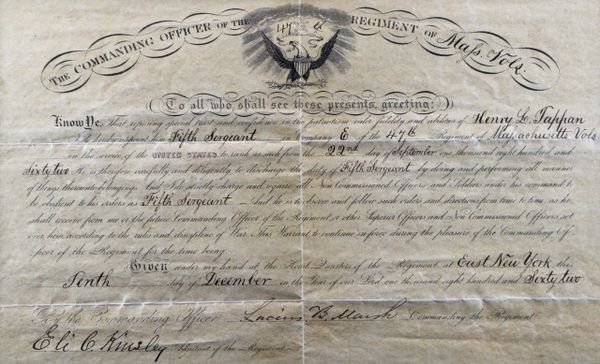 THE COMMANDING OFFICER OF THE 47th REGIMENT OF Mass. Vols.
To all who shall see these presents, greeting:
Know Ye, that reposing special trust and confidence in the patriotism valor, fidelity and abilities of Henry L. Tappan
I do hereby appoint him Fifth Sergeant in Company E of the 47th Regiment of Massachusetts Vols.
in the service of the UNITED STATES to rank as such from the 22nd day of September one thousand eight hundred and
Sixty two He is therefore carefully and diligently to discharge the duty of Fifth Sergeant by doing and performing all manner
of things thereunto belonging. And I do strictly charge and require all Non Commissioned Officers and Soldiers under his command to
be obedient to his orders as Fifth Sergeant And he is to observe and follow such orders and directions from time to time as he
shall receive from me or the future Commanding Officer of the Regiment or other Superior Officers and Non Commissioned Officers set
over him according to the rules and discipline of War. This Warrant to continue in force during the pleasure of the Commanding Of-
ficer of the Regiment for the time being.
Given under my hand at the Head Quarters of the Regiment, at East New York this
Tenth day of December in the Year of our Lord one thousand eight hundred and Sixty two
By the Commanding Officer Lucius B. Marsh Commanding the Regiment
Eli C. Kinsley Adjutant of the Regiment